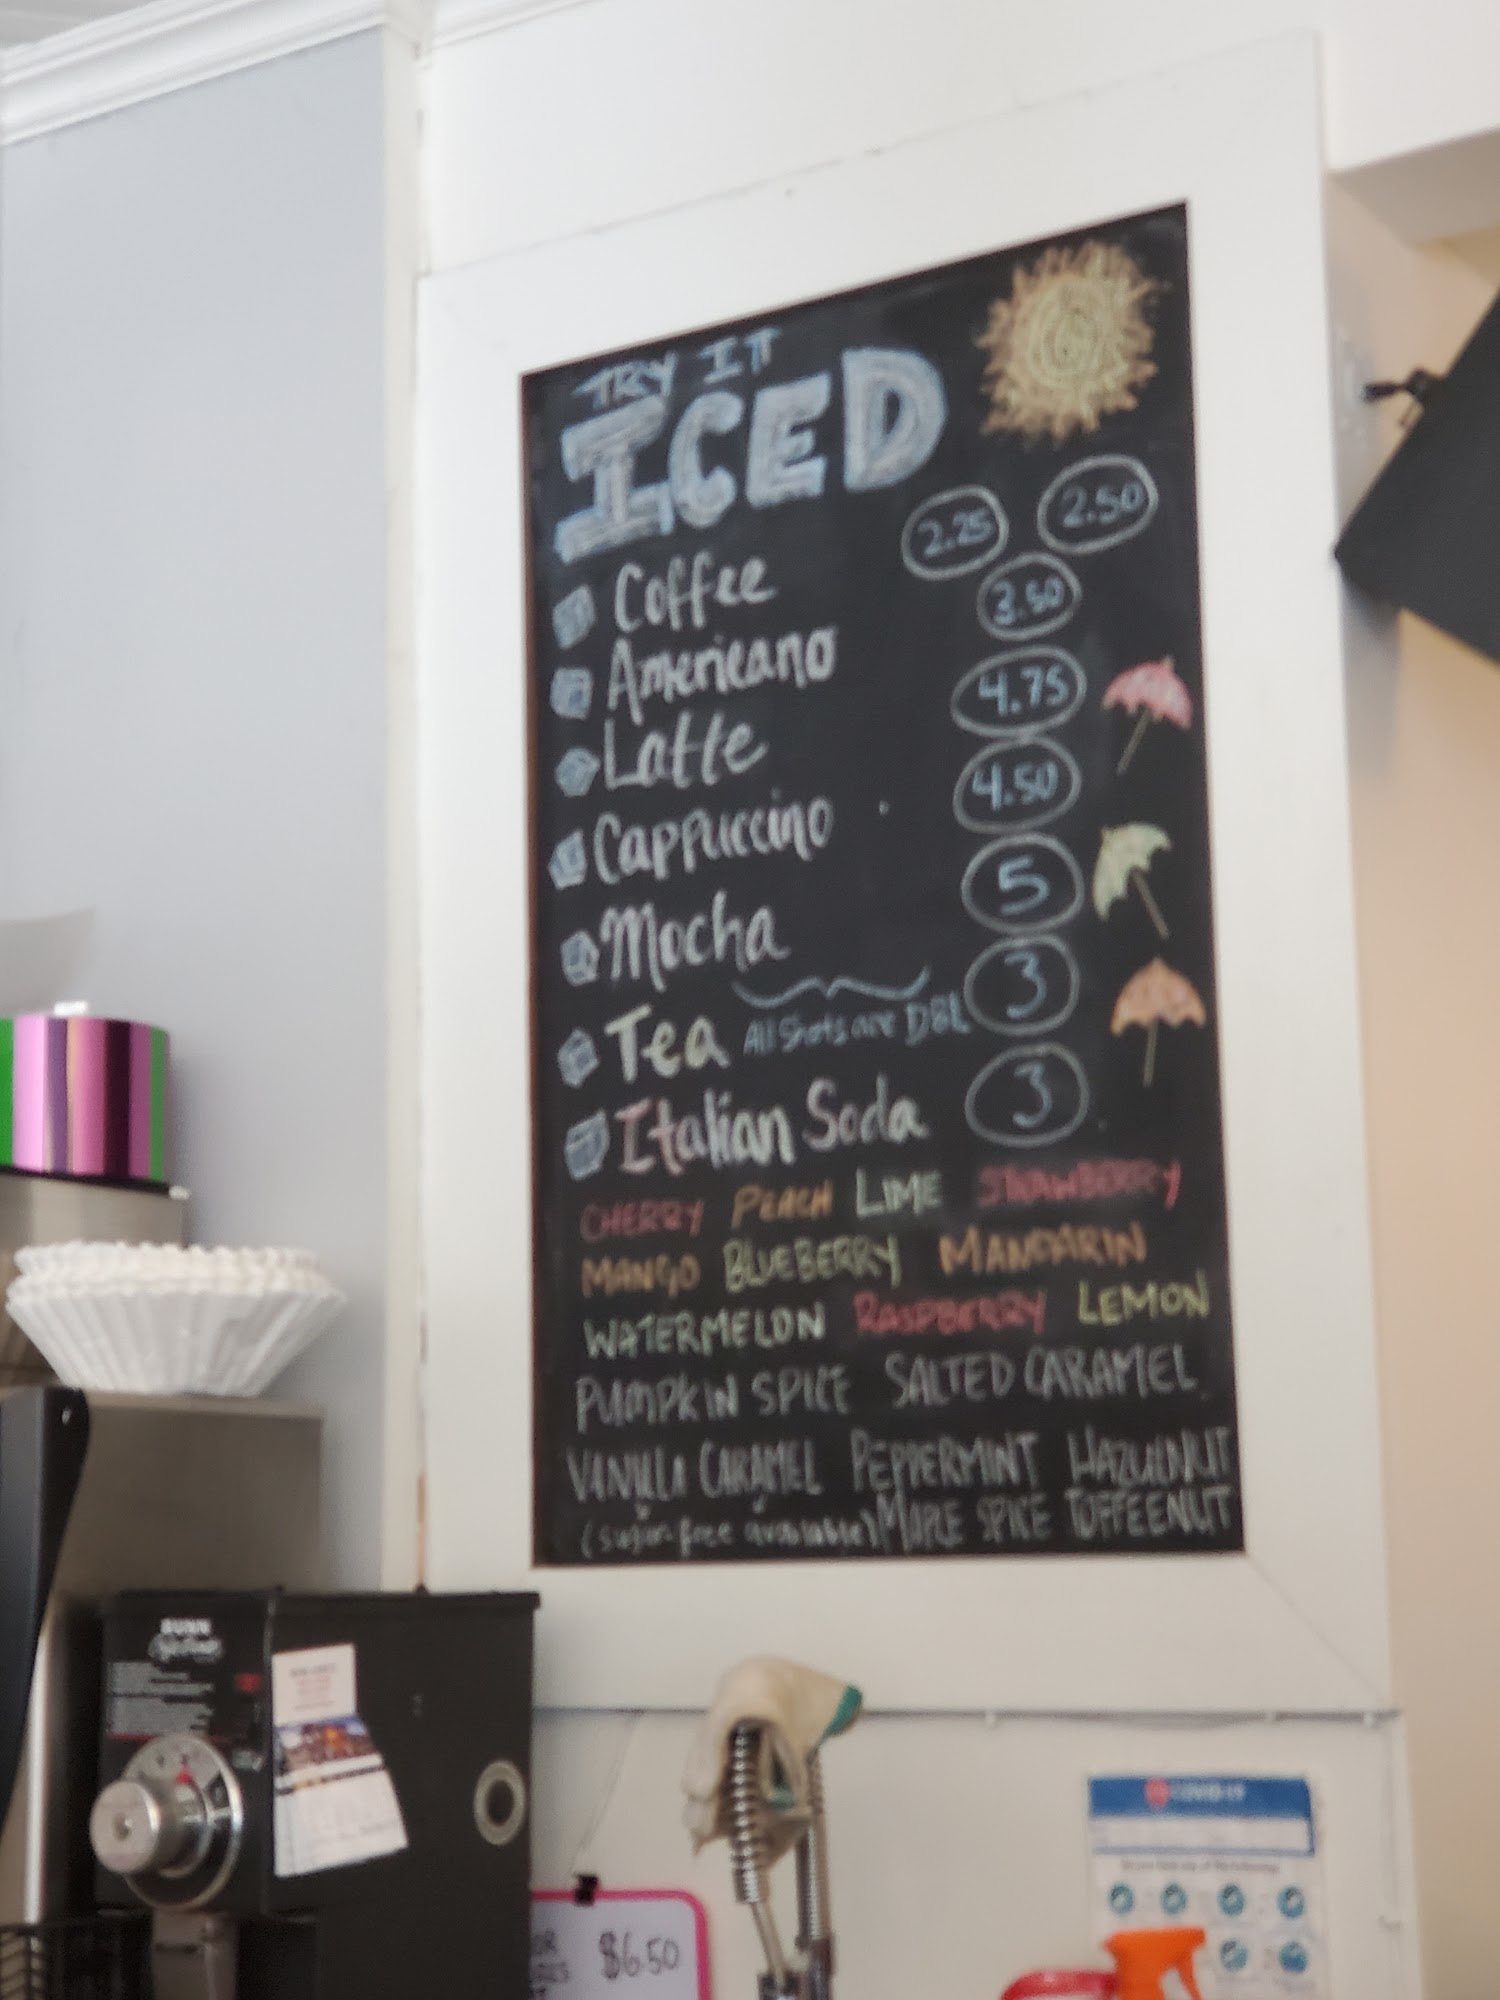 TRY IT
ICED
Coffee 2.25 2.50
Americano 3.50
Latte 4.75
Cappuccino 4.50
Mocha 5
Tea All Shots are DBL 3
Italian Soda 3
CHERRY PEACH LIME STRAWBERRY
MANGO BLUEBERRY MANDARIN
WATERMELON RASPBERRY LEMON
PUMPKIN SPICE SALTED CARAMEL
VANILLA CARAMEL PEPPERMINT HAZULNUT
(sugar-free available) MAPLE SPICE TOFFEENUT
BUNN
COVID-19
OR $6.50